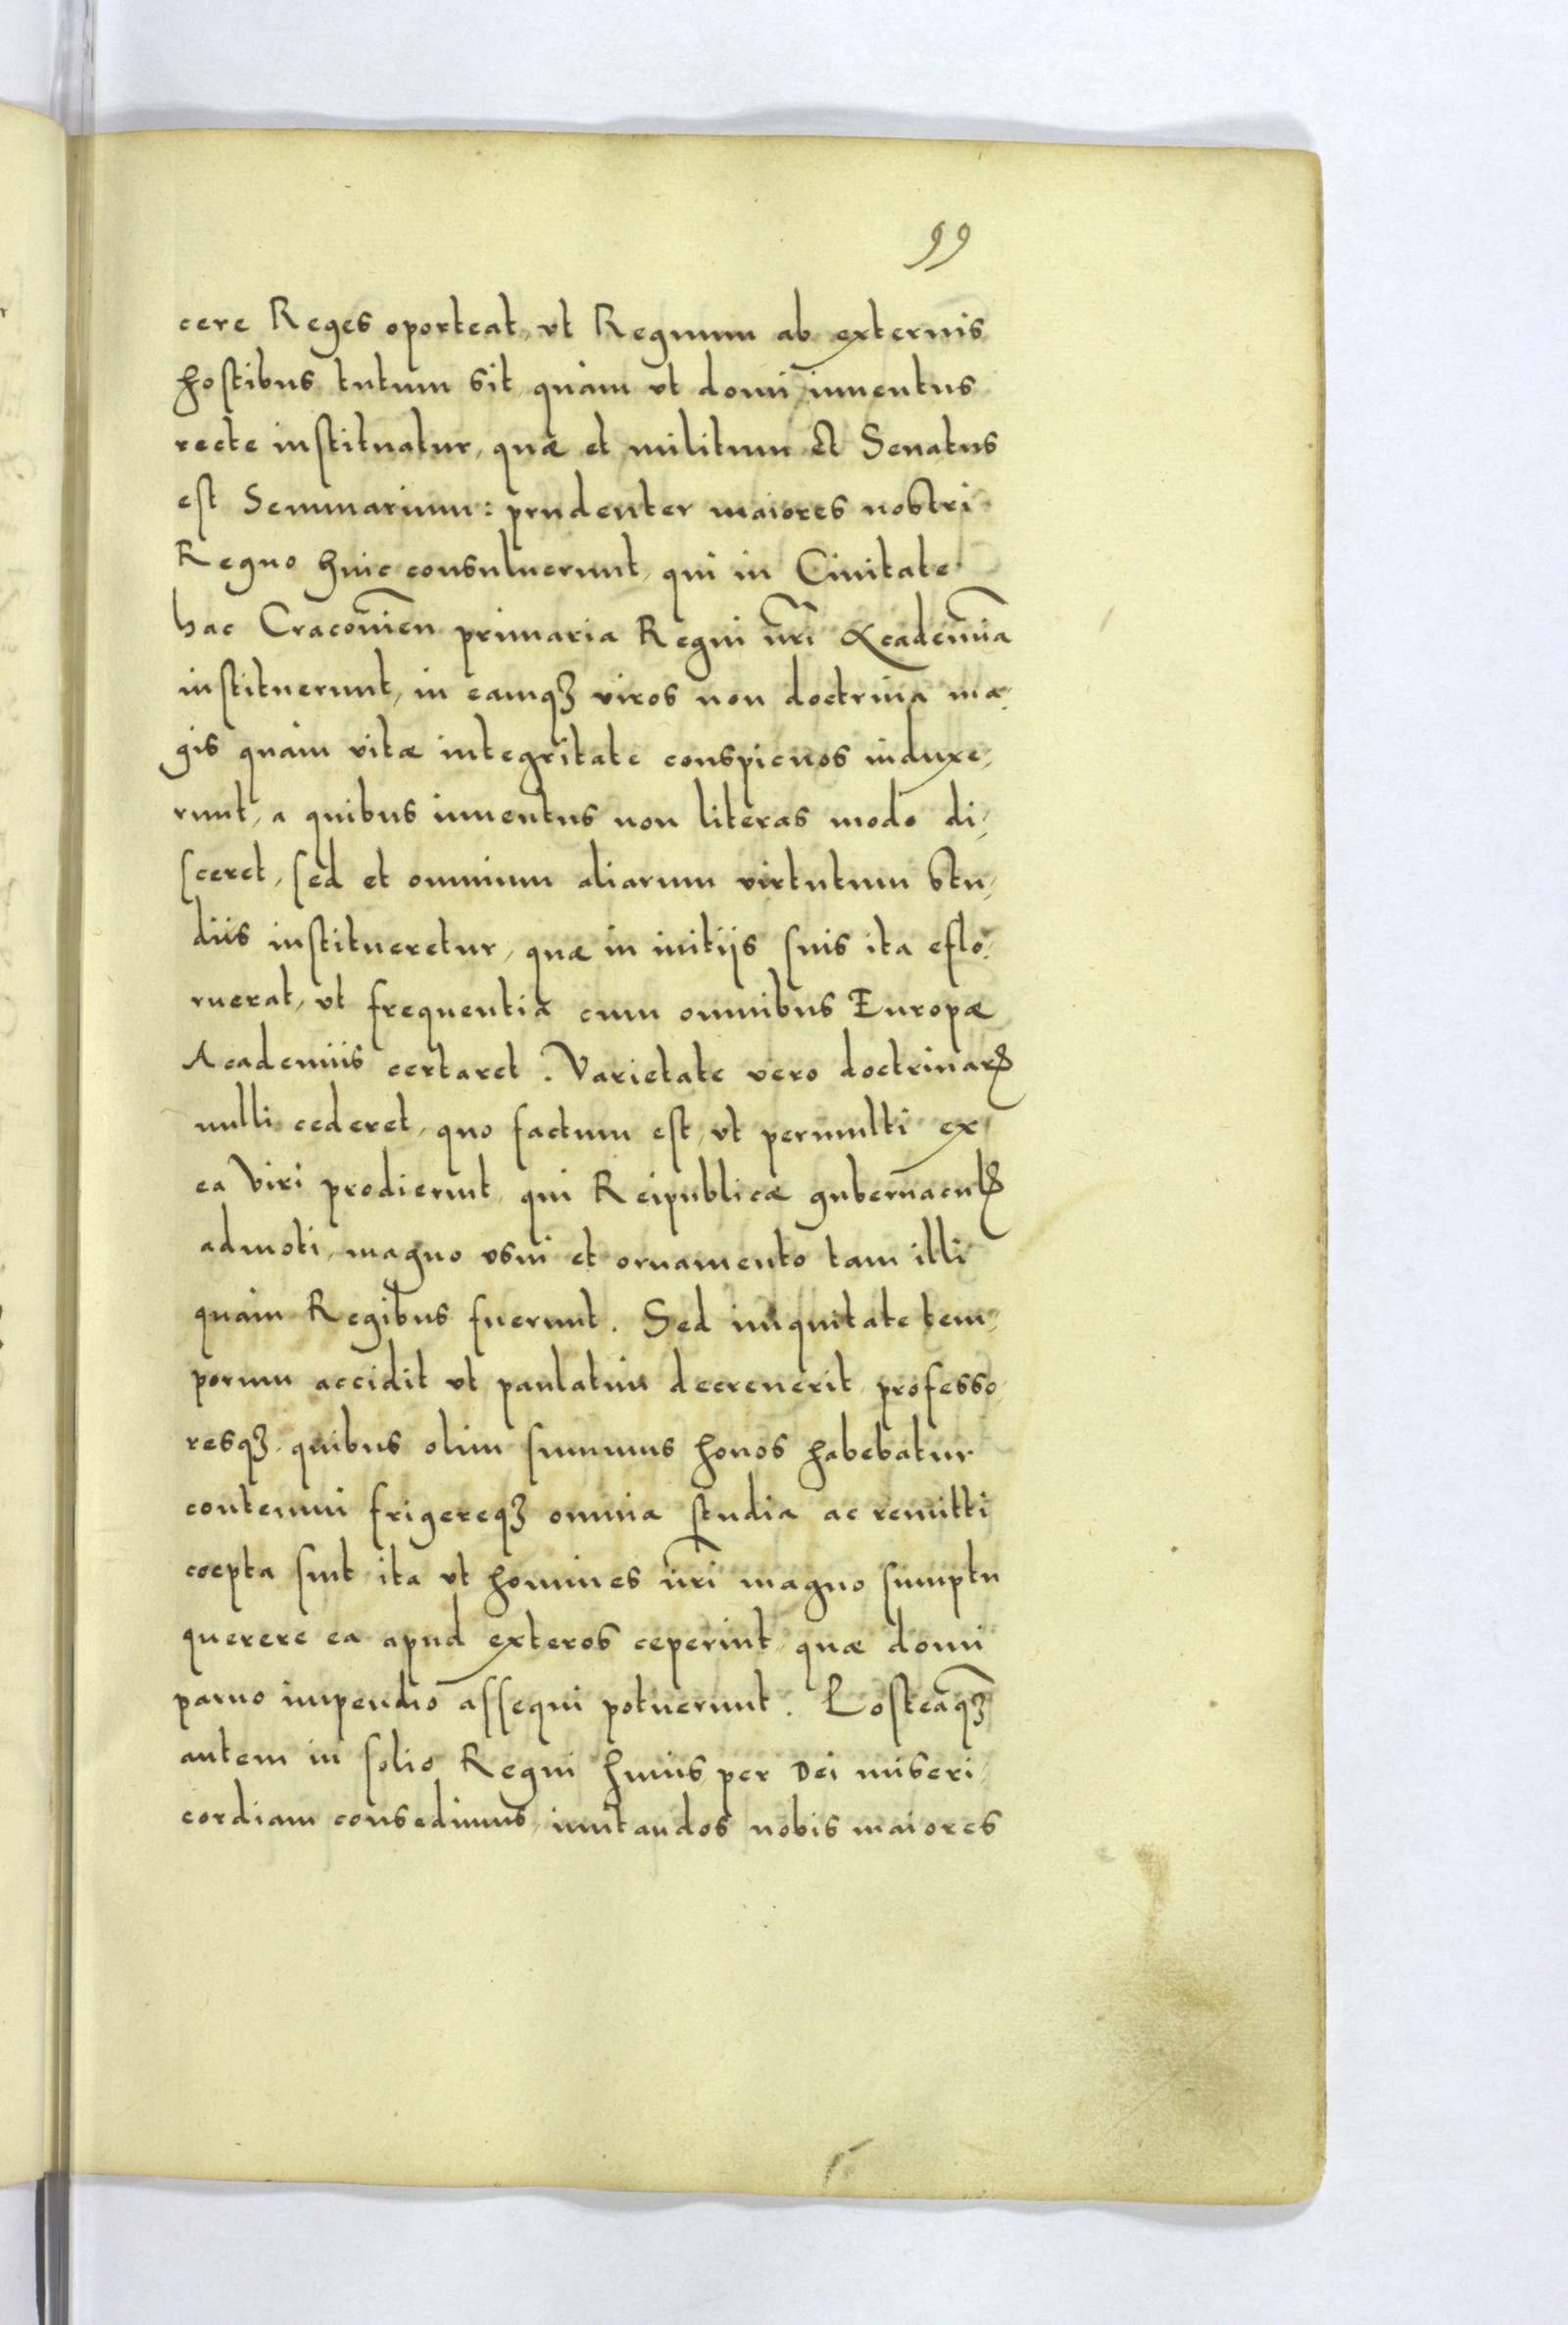 99
cere Reges oporteat, vt Regnum ab externis
hostibus tutum sit, quàm vt domi iuuentus
recte instituatur, quæ et militum et Senatus
est Seminarium: prudenter maiores nostri
Regno huic consuluerunt, qui in Ciuitate
hac Cracouień primaria Regni nr̃i Academiã
instituerunt, in eamqꝫ viros non doctrina ma-
gis quàm vitæ integritate conspicuos induxe-
runt, a quibus iuuentus non literas modo di-
sceret, sed et omnium aliarum virtutum stu-
diis institueretur, quæ in initijs suis ita eflo-
ruerat, vt frequentia cum omnibus Europæ
Academiis certaret. Varietate vero doctrinarꝫ
nulli cederet, quo factum est, vt permulti ex
ea Viri prodierint, qui Reipublicæ gubernaculꝫ
admoti, magno vsui et ornamento tam illi
quàm Regibus fuerunt. Sed iniquitate tem-
porum accidit vt paulatim decreuerit, professo-
resqꝫ quibus olim summus honos habebatur
contemni frigereqꝫ omnia studia ac remitti
coepta sint, ita vt homines nr̃i magno sumptu
querere ea apud exteros ceperint, quæ domi
paruo impendio assequi potuerunt. Posteaqꝫ̃
autem in solio Regni huius per Dei miseri-
cordiam consedimus, imitandos nobis maiores